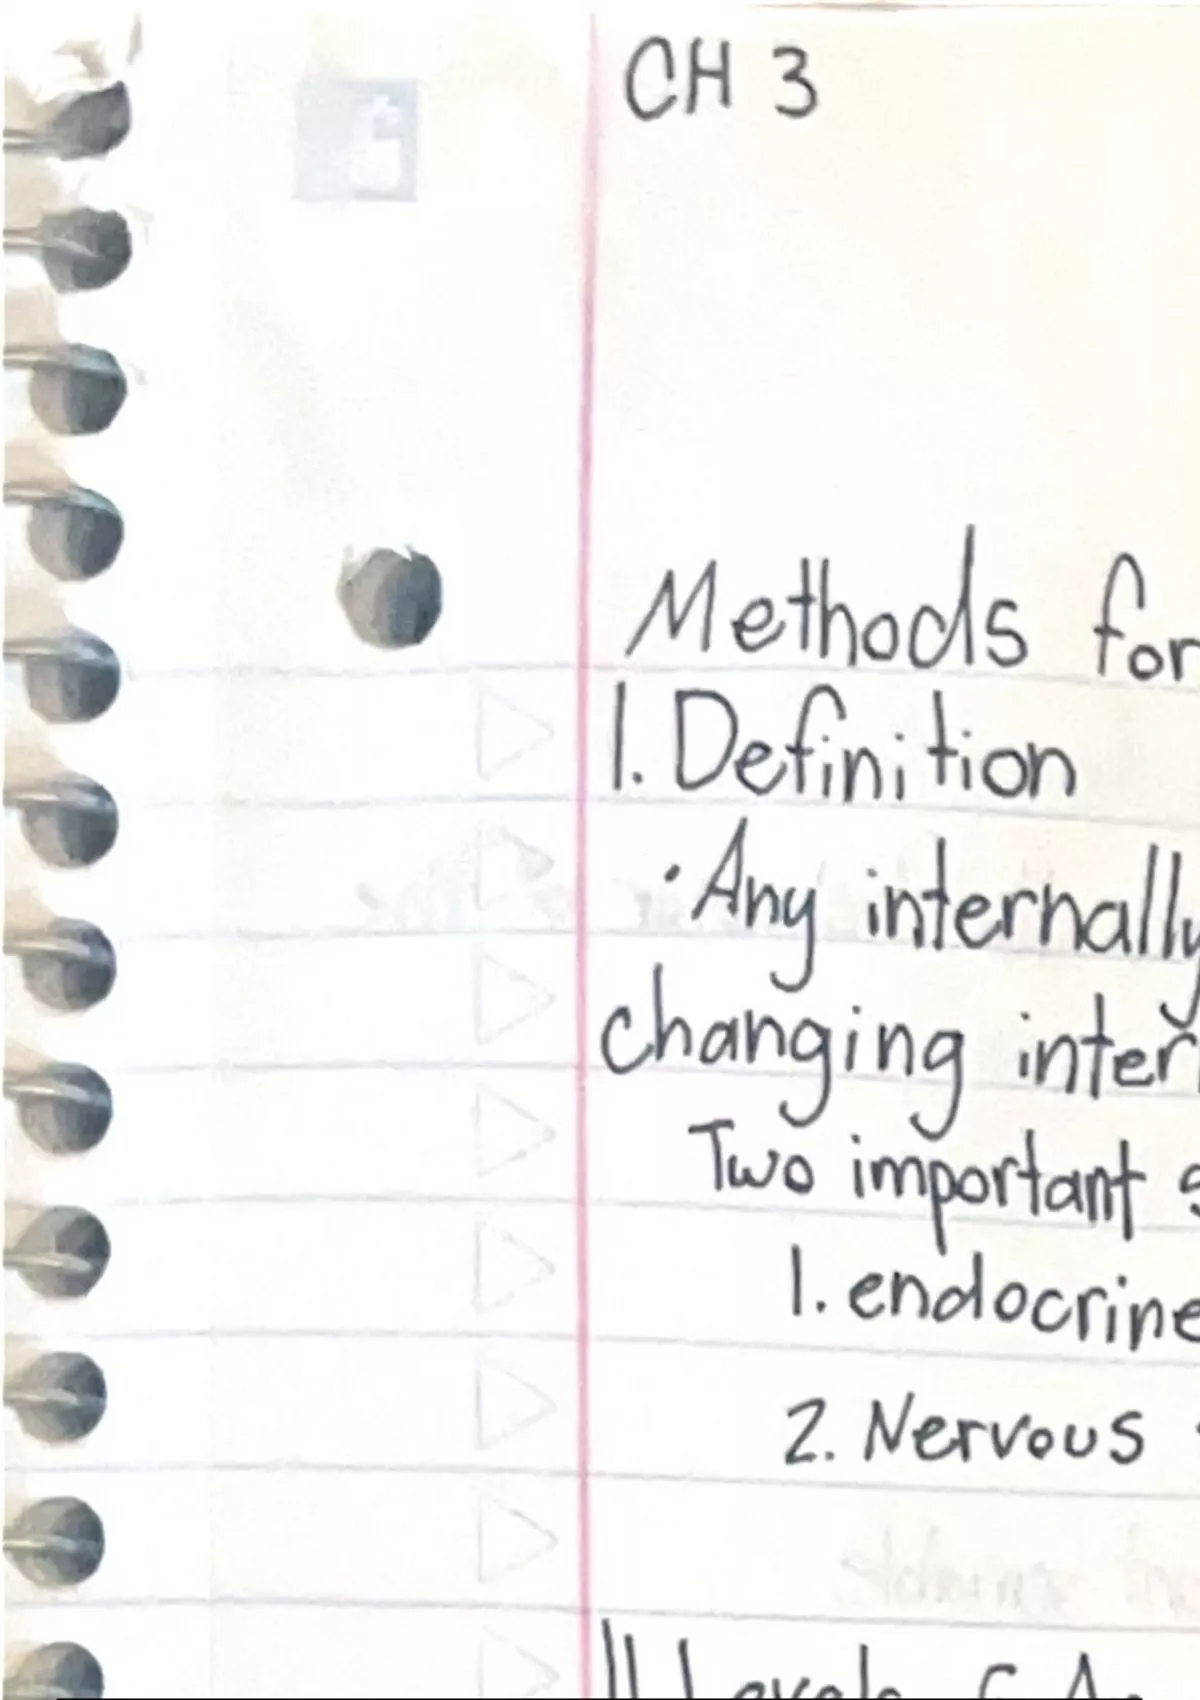 CH 3
Methods for
1. Definition
· Any internally
changing inter
Two important s
1. endocrine
2. Nervous